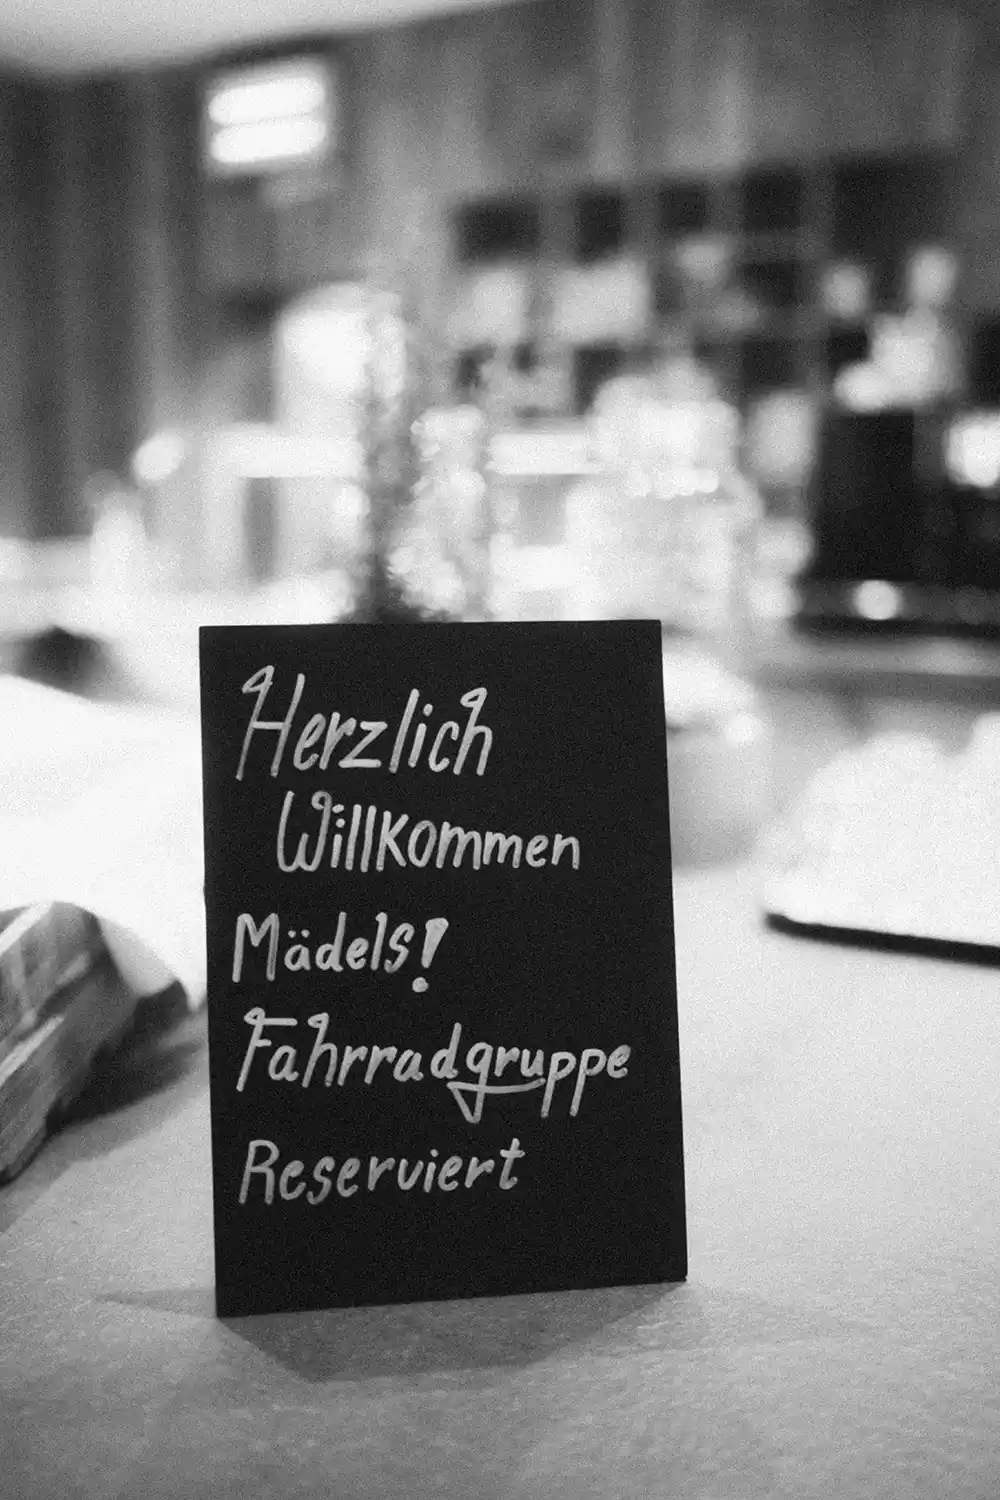 Herzlich
Willkommen
Mädels!
Fahrradgruppe
Reserviert